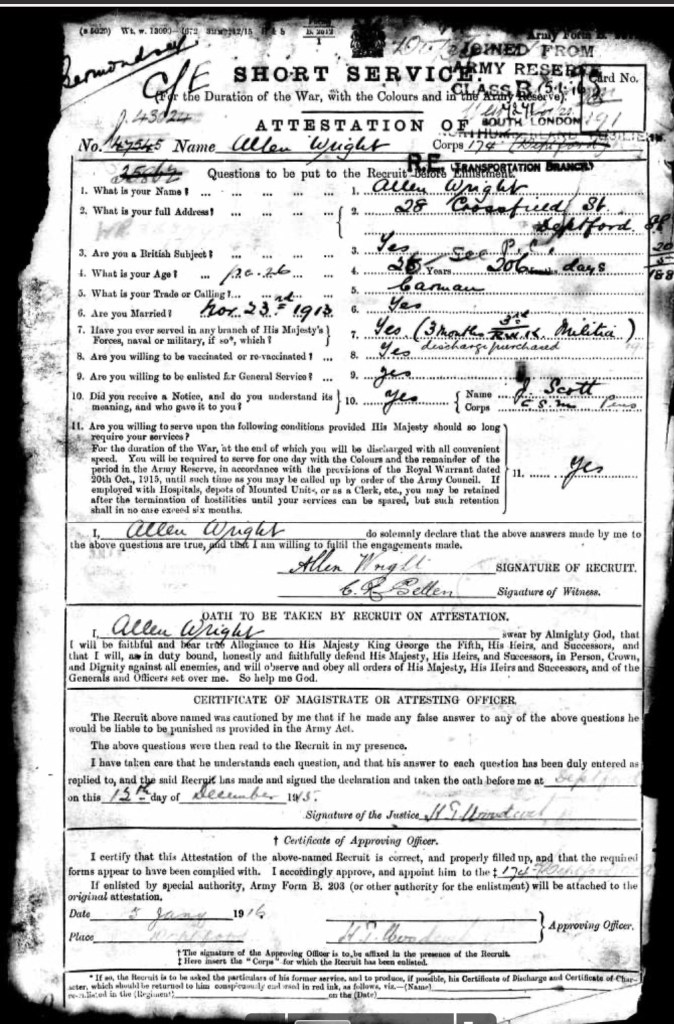 (8 5020) Wt. w. 13000—1672 3MM 12/15 H & S
B. 2512
1
Army Form B.
Bermondsey
JOINED FROM
ARMY RESERVE
CLASS B 15·1·16
SHORT SERVICE.
Card No.
191
(For the Duration of the War, with the Colours and in the Army Reserve).
SOUTH LONDON
43024
ATTESTATION OF
No. 47545 Name Allen Wright Corps 174 (Deptford)
R.E. (TRANSPORTATION BRANCH)
Questions to be put to the Recruit before Enlistment.
1. What is your Name? ... 1. Allen Wright
2. What is your full Address? ... 2. 28 Crossfield St.
Deptford
3. Are you a British Subject? ... 3. Yes
4. What is your Age? ... 4. 25 Years 206 Months days
5. What is your Trade or Calling? ... 5. Carman
6. Are you Married? Nov. 23rd 1913. 6. Yes
7. Have you ever served in any branch of His Majesty's Forces, naval or military, if so*, which? 7. Yes (3 months 3rd R.W.K. Militia)
discharge purchased
8. Are you willing to be vaccinated or re-vaccinated? ... 8. Yes
9. Are you willing to be enlisted for General Service? ... 9. Yes
10. Did you receive a Notice, and do you understand its meaning, and who gave it to you? 10. Yes Name J. Scott
Corps C.S.M.
11. Are you willing to serve upon the following conditions provided His Majesty should so long
require your services?
For the duration of the War, at the end of which you will be discharged with all convenient
speed. You will be required to serve for one day with the Colours and the remainder of the
period in the Army Reserve, in accordance with the provisions of the Royal Warrant dated
20th Oct., 1915, until such time as you may be called up by order of the Army Council. If
employed with Hospitals, depots of Mounted Units, or as a Clerk, etc., you may be retained
after the termination of hostilities until your services can be spared, but such retention
shall in no case exceed six months.
11. Yes
I, Allen Wright do solemnly declare that the above answers made by me to
the above questions are true, and that I am willing to fulfil the engagements made.
Allen Wright SIGNATURE OF RECRUIT.
Signature of Witness.
OATH TO BE TAKEN BY RECRUIT ON ATTESTATION.
I, Allen Wright swear by Almighty God, that
I will be faithful and bear true Allegiance to His Majesty King George the Fifth, His Heirs, and Successors, and
that I will, as in duty bound, honestly and faithfully defend His Majesty, His Heirs, and Successors, in Person, Crown,
and Dignity against all enemies, and will observe and obey all orders of His Majesty, His Heirs and Successors, and of the
Generals and Officers set over me. So help me God.
CERTIFICATE OF MAGISTRATE OR ATTESTING OFFICER.
The Recruit above named was cautioned by me that if he made any false answer to any of the above questions he
would be liable to be punished as provided in the Army Act.
The above questions were then read to the Recruit in my presence.
I have taken care that he understands each question, and that his answer to each question has been duly entered as
replied to, and the said Recruit has made and signed the declaration and taken the oath before me at Deptford
on this 12th day of December 1915.
Signature of the Justice
† Certificate of Approving Officer.
I certify that this Attestation of the above-named Recruit is correct, and properly filled up, and that the required
forms appear to have been complied with. I accordingly approve, and appoint him to the ‡ 174 Deptford
If enlisted by special authority, Army Form B. 203 (or other authority for the enlistment) will be attached to the
original attestation.
Date 5 Jany 1916
Place
Approving Officer.
† The signature of the Approving Officer is to be affixed in the presence of the Recruit.
‡ Here insert the "Corps" for which the Recruit has been enlisted.
* If so, the Recruit is to be asked the particulars of his former service, and to produce, if possible, his Certificate of Discharge and Certificate of Char-
acter, which should be returned to him conspicuously endorsed in red ink, as follows, viz.—(Name)
re-enlisted in the (Regiment) on the (Date)